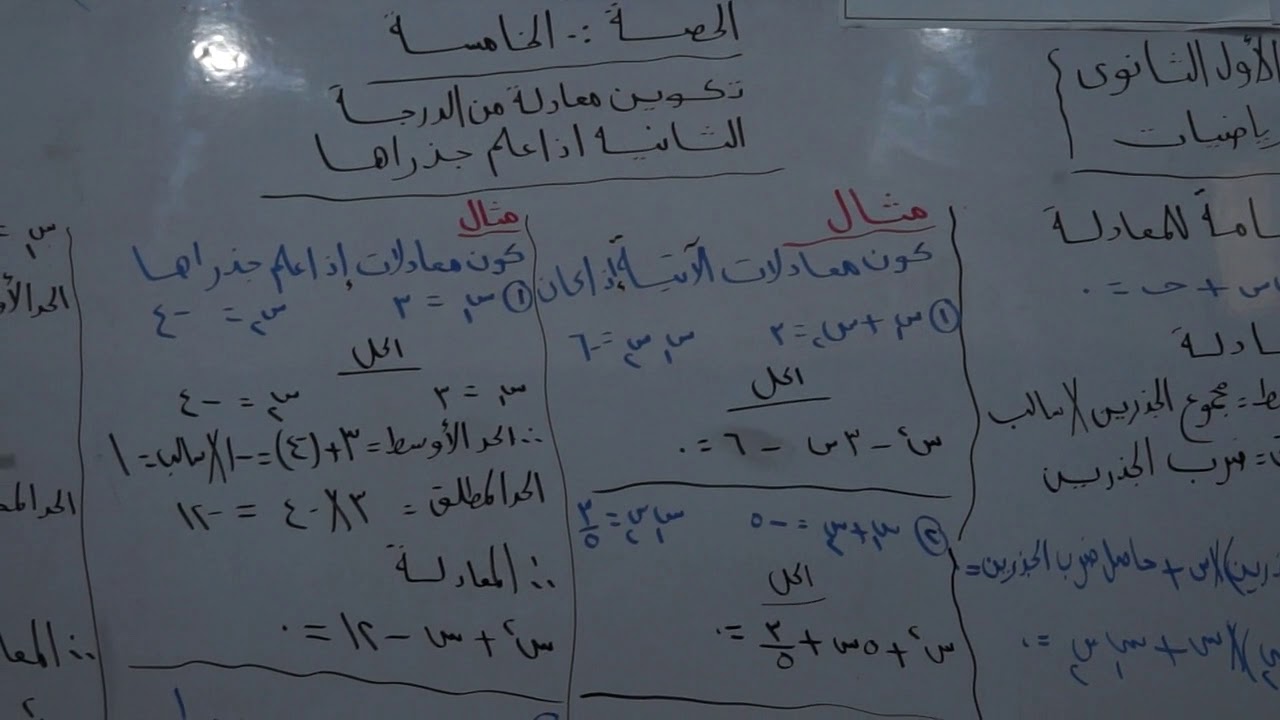 الحصة :- الخامسة
تكوين معادلة من الدرجة
الثانية اذا علم جذراها
الأول الثانوى
للمعادلة
س + حـ = ٠
ط = مجموع الجذرين × سالب
= ضرب الجذرين
س + حاصل ضرب الجذرين =
مثال
كون معادلات الآتية إذا كان
① س١ + س٢ = ٣ س١ س٢ = -٦
الحل
س٢ - ٣س - ٦ = ٠
② س١ + س٢ = -٥ س١ س٢ = ٣/٥
الحل
س٢ + ٥س + ٣/٥ = ٠
مثال
كون معادلات إذا علم جذراها
① س١ = ٣ س٢ = -٤
الحل
س١ = ٣ س٢ = -٤
∴ الحد الأوسط = ٣ + (-٤) = -١ × سالب = ١
الحد المطلق = ٣ × -٤ = -١٢
∴ المعادلة
س٢ + س - ١٢ = ٠
س١ =